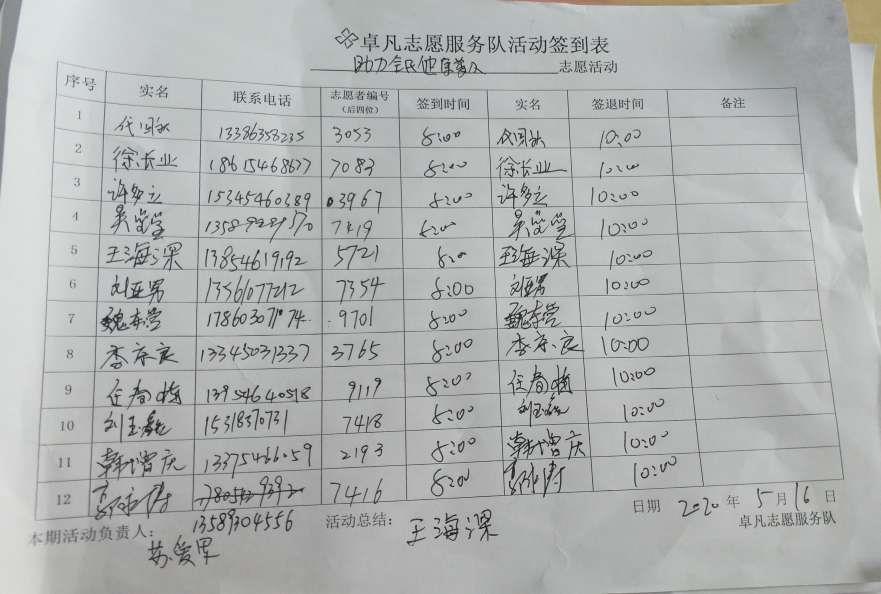 卓凡志愿服务队活动签到表
助力全民健 志愿活动
序号 实名 联系电话 志愿者编号（后四位） 签到时间 实名 签退时间 备注
1 代国 13386358235 3053 8:00 代国 10:00
2 徐长业 18615468677 7083 8:00 徐长业 10:00
3 许多立 15345460389 3967 8:00 许多立 10:00
4 吴莹莹 7419 8:00 吴莹莹 10:00
5 王海深 13854619192 5721 8:00 王海深 10:00
6 刘亚男 13561077212 7354 8:00 刘亚男 10:00
7 魏东营 17860307174 9701 8:00 魏东营 10:00
8 李庆良 13345031337 3765 8:00 李庆良 10:00
9 任春梅 13954640518 9119 8:00 任春梅 10:00
10 刘玉 15318370731 7418 8:00 刘玉 10:00
11 韩曾庆 13375466059 2193 8:00 韩曾庆 10:00
12 7416 8:00 10:00
13589304556
日期 2020年5月16日
本期活动负责人： 活动总结： 王海深 卓凡志愿服务队
苏爱军